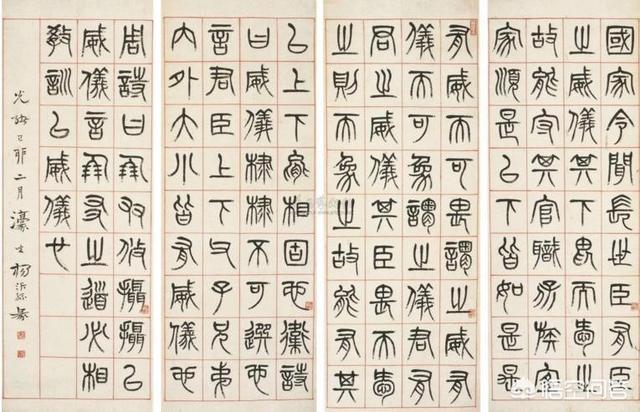 國家令聞長世臣有臣
之威儀其下畏而愛之
故能守其官職保族宜
家順是以下皆如是是
有威而可畏謂之威有
儀而可象謂之儀君有
君之威儀其臣畏而愛
之則而象之故能有其
以上下能相固也衛詩
曰威儀棣棣不可選也
言君臣上下父子兄弟
內外大小皆有威儀也
周詩曰朋友攸攝攝以
威儀言朋友之道必相
教訓以威儀也
光緒己卯二月濠叟楊沂孫篆
悟空问答